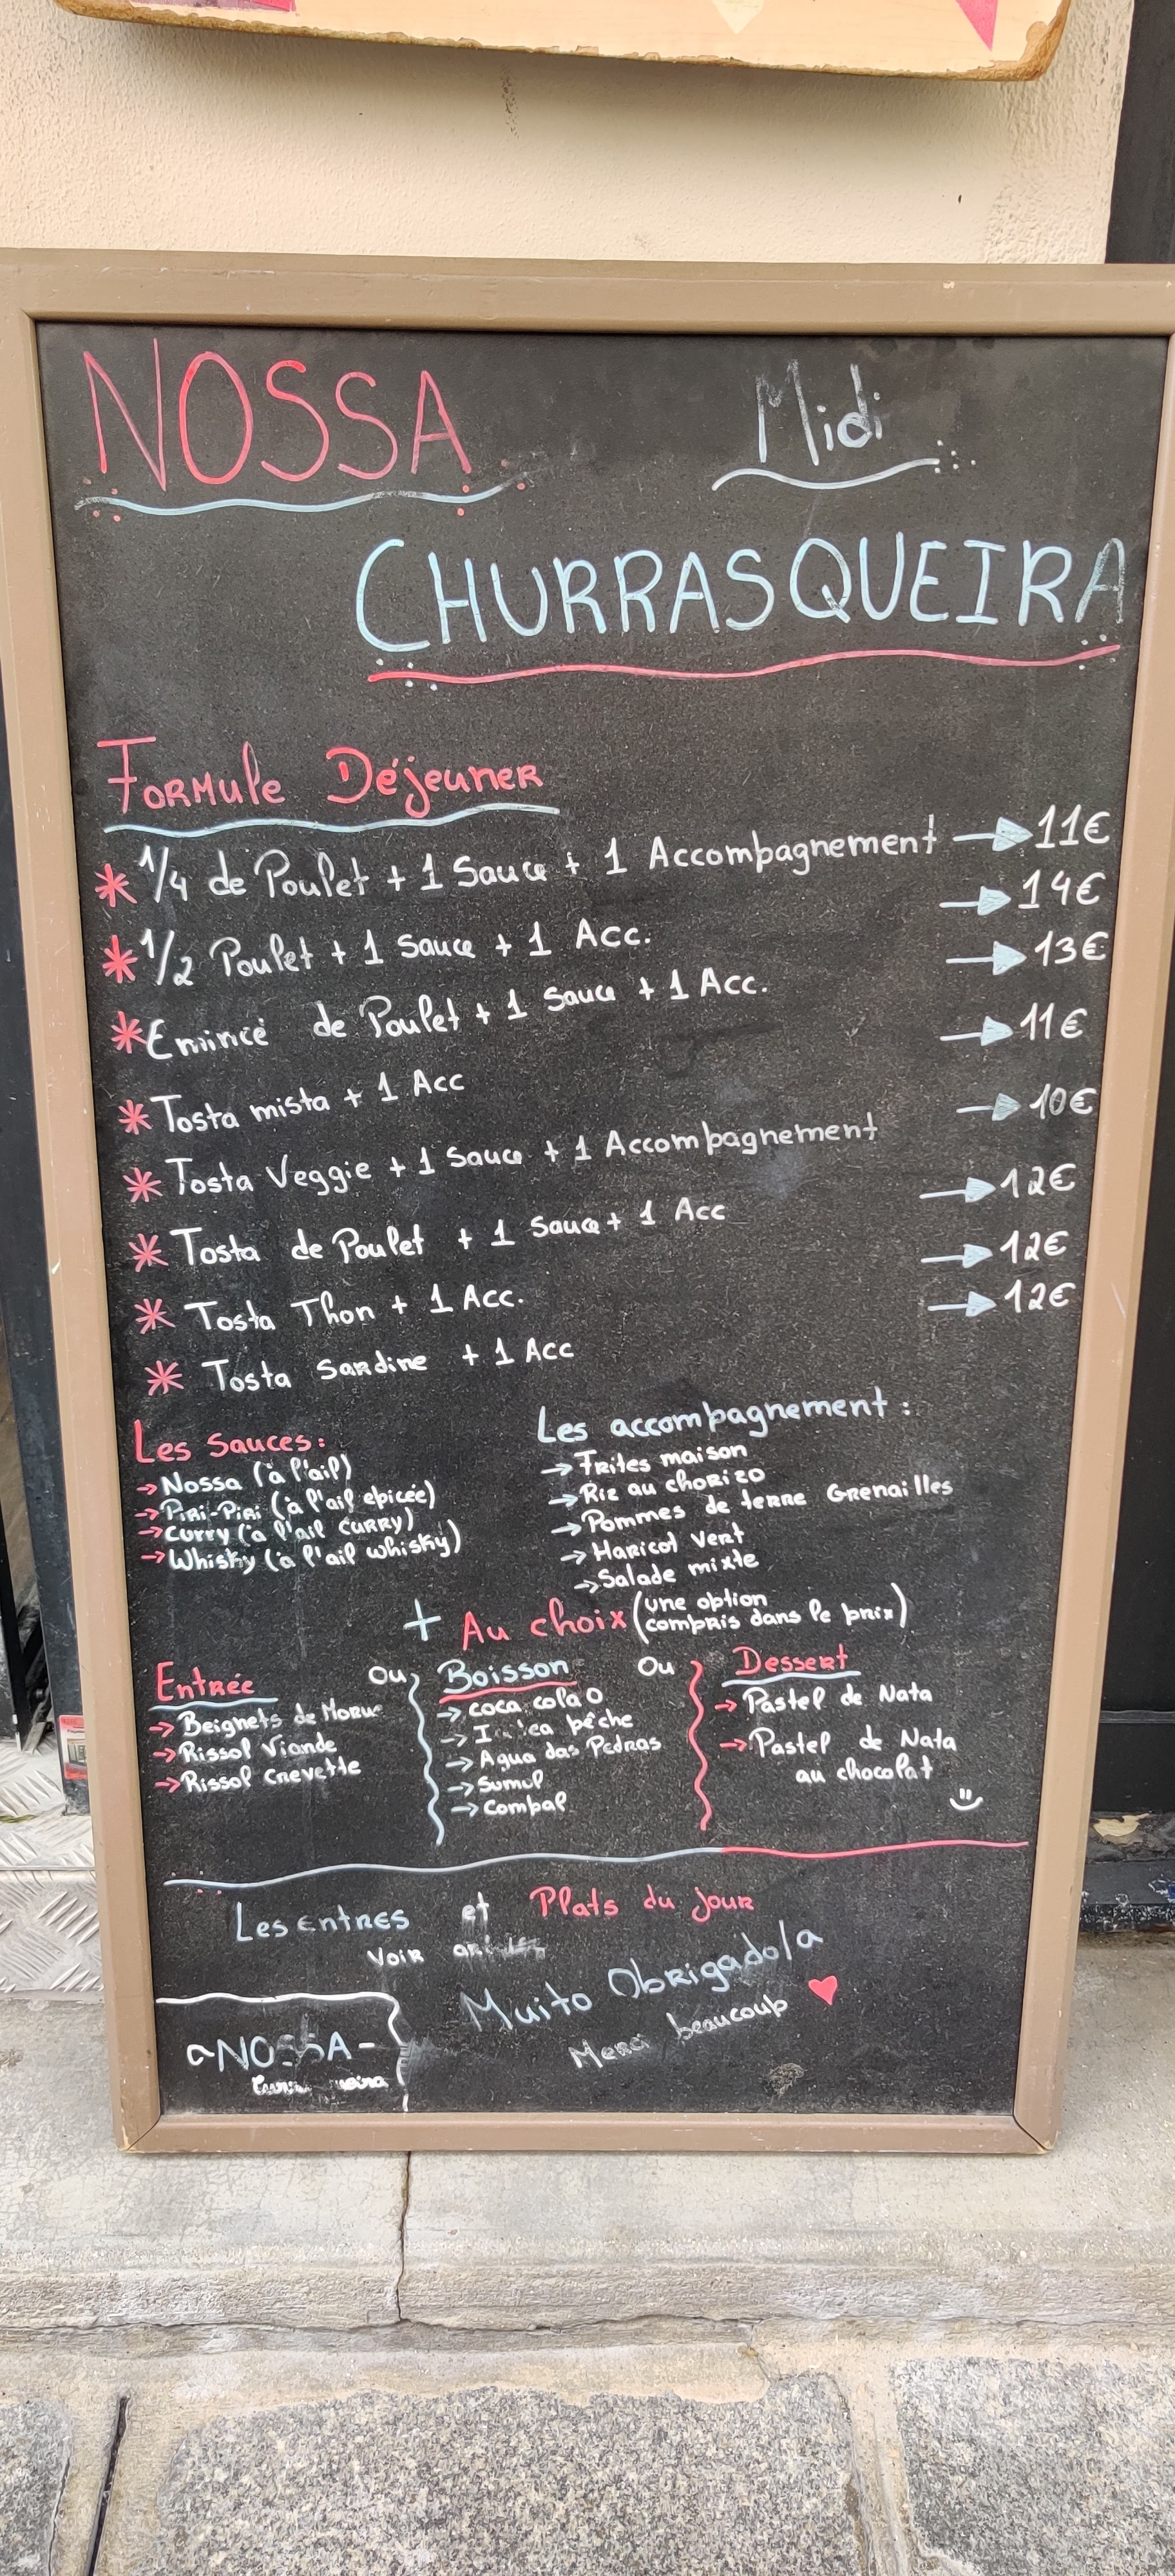 NOSSA Midi
CHURRASQUEIRA
Formule Déjeuner
* 1/4 de Poulet + 1 Sauce + 1 Accompagnement → 11€
* 1/2 Poulet + 1 Sauce + 1 Acc. → 14€
* Emincé de Poulet + 1 Sauce + 1 Acc. → 13€
* Tosta mista + 1 Acc → 11€
* Tosta Veggie + 1 Sauce + 1 Accompagnement → 10€
* Tosta de Poulet + 1 Sauce + 1 Acc → 12€
* Tosta Thon + 1 Acc. → 12€
* Tosta Sardine + 1 Acc → 12€
Les Sauces:
→ Nossa (à l'ail)
→ Piri-Piri (à l'ail epicée)
→ Curry (à l'ail CURRY)
→ Whisky (à l'ail whisky)
Les accompagnement:
→ Frites maison
→ Riz au chorizo
→ Pommes de terre Grenailles
→ Haricot vert
→ Salade mixte
+ Au choix (une option
compris dans le prix)
Entrée
→ Beignets de Morue
→ Rissol Viande
→ Rissol Crevette
Ou
Boisson
→ coca cola 0
→ pêche
→ Agua das Pedras
→ Sumol
→ Compal
Ou
Dessert
→ Pastel de Nata
→ Pastel de Nata
au chocolat
Les Entres et Plats du jour
Voir
Muito Obrigado/a
Merci beaucoup
NOSSA -